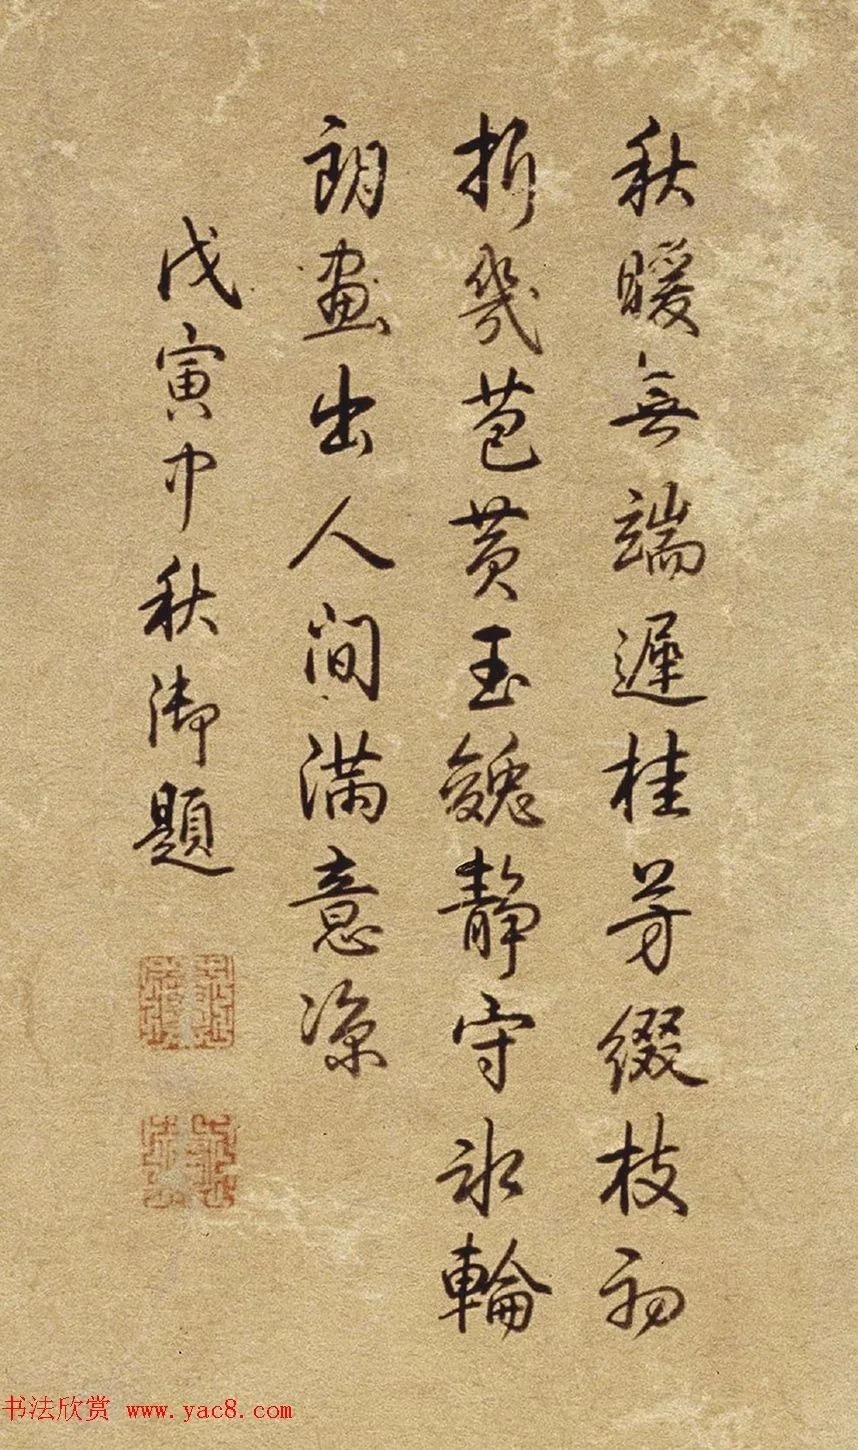 秋暖無端遲桂芳綴枝初
折幾苞黄玉㕙静守冰輪
朗畫出人間滿意涼
戊寅中秋御題
书法欣赏 www.yac8.com